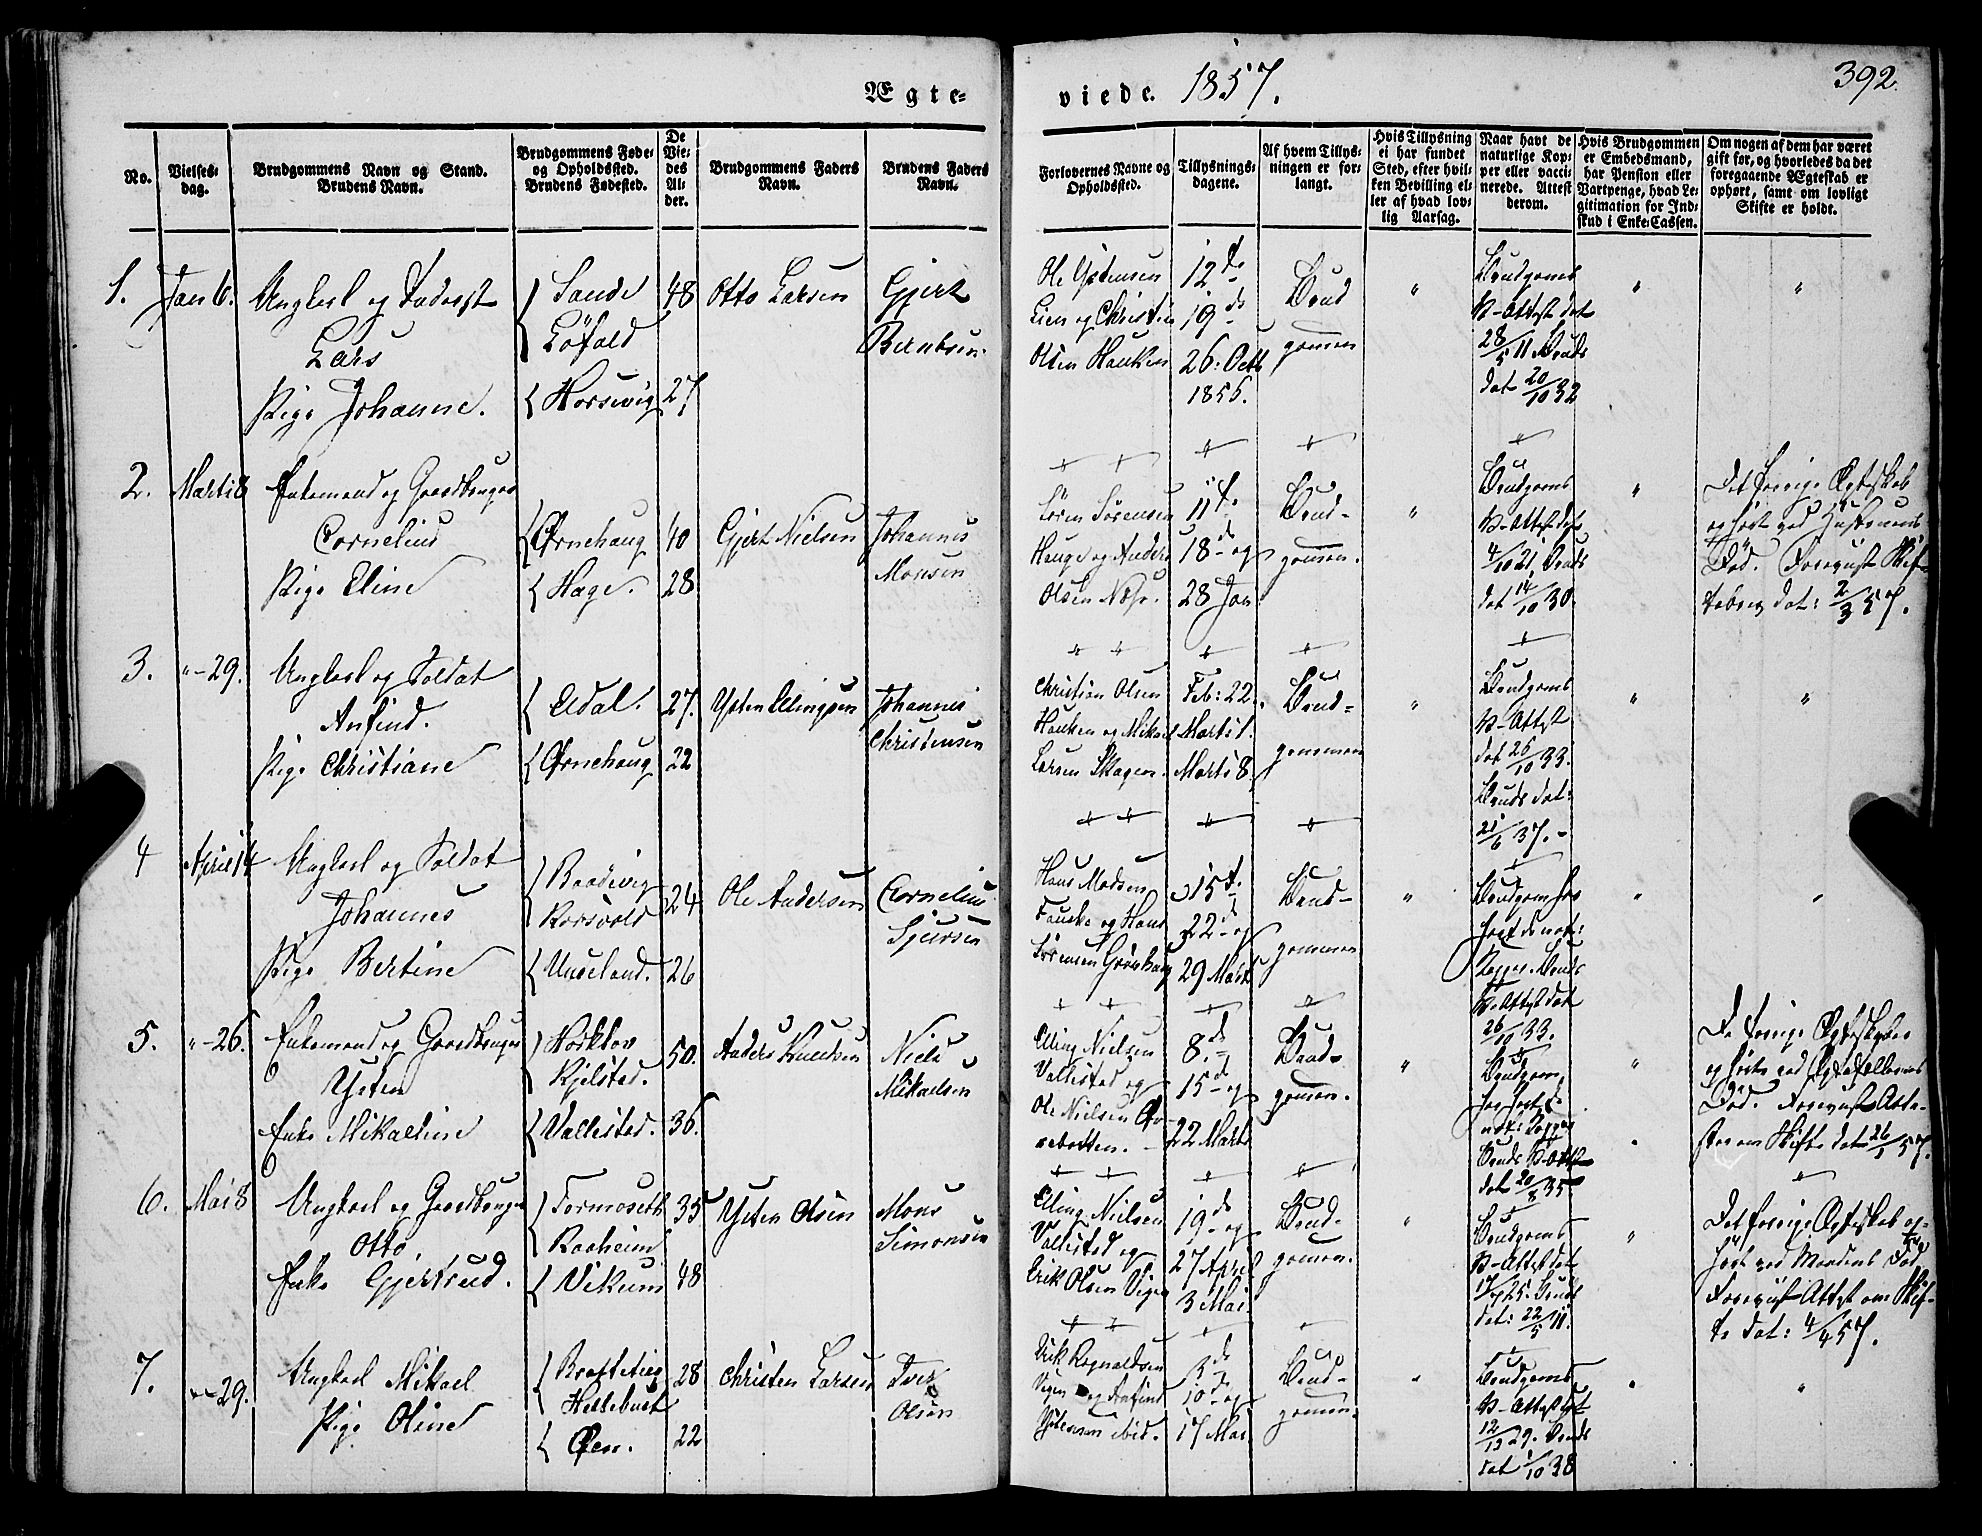 Ægte-
viede. 1857.
392.
No.
Vielses-
dag.
Brudgommens Navn og Stand.
Brudens Navn.
Brudgommens Føde-
og Opholdssted.
Brudens Fødested.
De
Vie-
des
Al-
der.
Brudgommens Faders
Navn.
Brudens Faders
Navn.
Forlovernes Navne og
Opholdssted.
Tillysnings-
dagene.
Af hvem Tillys-
ningen er for-
langt.
Hvis Tillysning
ei har fundet
Sted, efter hvil-
ken Bevilling el-
ler af hvad lov-
lig Aarsag.
Naar havt de
naturlige Kop-
per eller vacci-
nerede. Attest
derom.
Hvis Brudgommen
er Embedsmand,
har Pension eller
Vartpenge, hvad Le-
gitimation for Ind-
skud i Enke-Cassen.
Om nogen af dem har været
gift før, og hvorledes da det
foregaaende Ægteskab er
ophørt, samt om lovligt
Skifte er holdt.
1. Jan 6. Ungkarl og
Lars
Pige Johanne.
Sande
Løfald
Horsevig
48
27
Otto Larsen
Gjert
Berntsen.
Ole Ystensen
Lien og Christen
Olsen Hauken
12te
19de
26: Octb
1856.
Brud
gomen
Brudgoms
V-Attest dat
28/5 11 Bruds
dat 20/10 32
2. Marts 8 Enkemand og Gaardbruger
Cornelius
Pige Eline
Ørnehaug
Hage.
40
28
Gjert Nielsen
Johannes
Monsen
Søren Sørensen
Hauge og Anders
Olsen
11te
18de og
28 Jan
Brud-
gomen.
Brudgoms
V-Attest dat
4/10 21, Bruds
dat 14/10 30.
Det forrige Ægteskab
ophørt ved Hustruens
Død. Forevist Skif-
tebrev dat: 2/3 57.
3. "-29. Ungkarl og Soldat
Anfind.
Pige Christiane
Ørnehaug
27.
22
Ysten Ellingsen
Johannes
Christensen
Christian Olsen
Hauken og Mikael
Larsen Skagen.
Feb: 22.
Marts 1.
Marts 8.
Brud-
gommen
Brudgoms
V-Attest
dat 26/10 33.
Bruds dat:
21/6 37.
4 April 14 Ungkarl og Soldat
Johannes
Pige Bertine
Raadivig
Korsvold
Unseland.
24
26
Ole Andersen
Cornelius
Sjursen
Hans Madsen
Fauske og Hans
Sørensen Grønhaug
15de
22de og
29 Marts
Brud-
gommen
Brudgom har
havt de nat:
Kopper. Bruds
V-Attest dat
26/10 33.
5. "-26. Enkemand og Gaardbruger
Ysten
Enke Mikaeline
Kjelstad.
Vallestad.
50.
36.
Anders Knudsen
Niels
Mikaelsen
Elling Nielsen
Vallestad og
Ole Nielsen
8de
15de og
22 Marts
Brud-
gomen.
Brudgom
har havt de
nat: Kopper
Bruds V-Att
dat 20/8 35
De forrige Ægteskaber
ophørte ved Ægtefællernes
Død. Forevist Atte-
ster om Skifte dat 26/1 57.
6. Mai 8 Ungkarl og Gaardbruger
Otto,
Enke Gjertrud.
Formoseth
Raaheim
Vikum
35
48
Ysten Olsen
Mons
Simonsen
Elling Nielsen
Vallestad og
Erik Olsen
19de og
27 April
3 Mai
Brud-
gomen.
Brudgoms
V-Attest dat
17/7 25. Bruds
dat: 22/5 11.
Det forrige Ægteskab op-
hørt ved Mandens Død
Forevist Attest om Skif-
te dat: 4/4 57.
7. "-29. Ungkarl Mikael
Pige Oline
Hellebust
Øen.
28
22
Christen Larsen
Iver
Olsen
Erik Rognaldsen
og Anfind
Ystensen ibid.
3de
10de og
17 Mai
Brud-
gomen.
Brudgoms
V-Attest dat
12/12 29. Bruds
dat 1/10 38